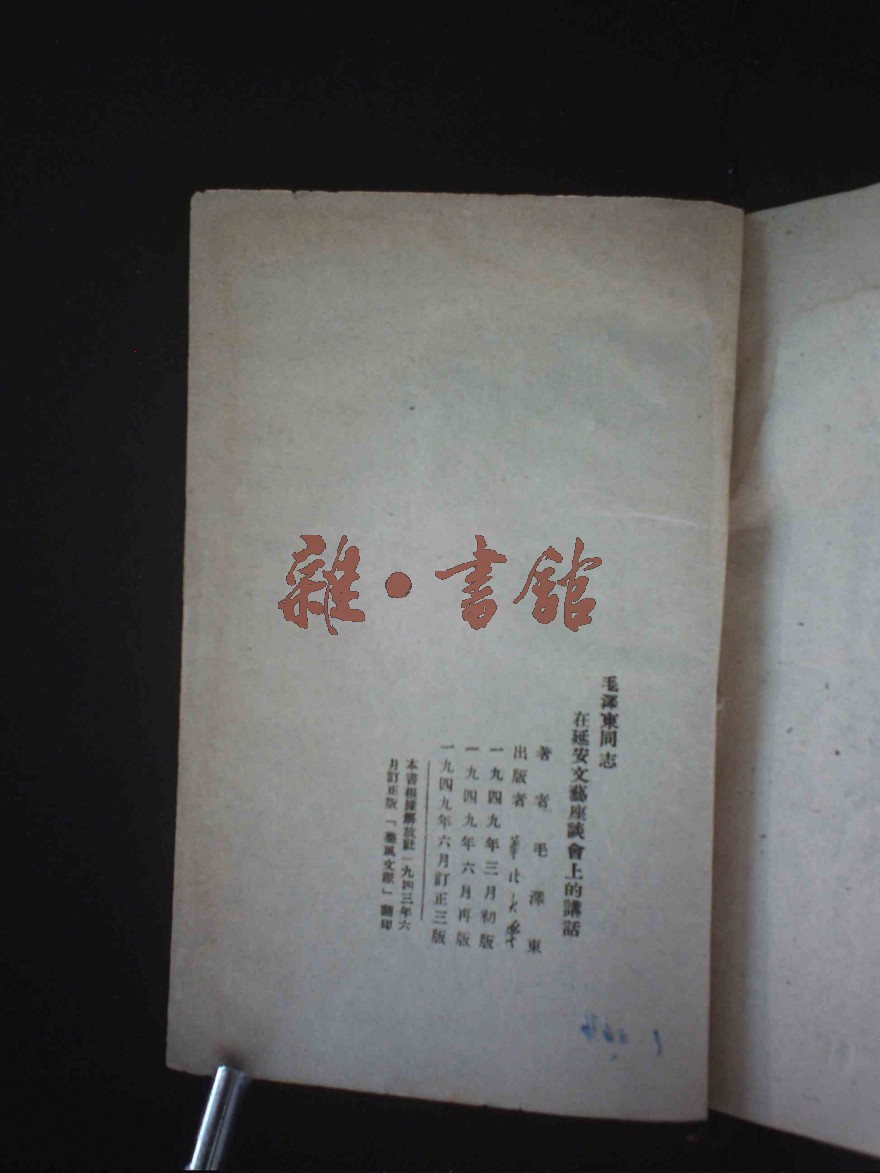 雜·書館
毛澤東同志
在延安文藝座談會上的講話
著者毛澤東
出版者 華北大學
一九四九年三月初版
一九四九年六月再版
一九四九年六月訂正三版
本書根據解放社一九四三年六
月訂正版「整風文獻」翻印